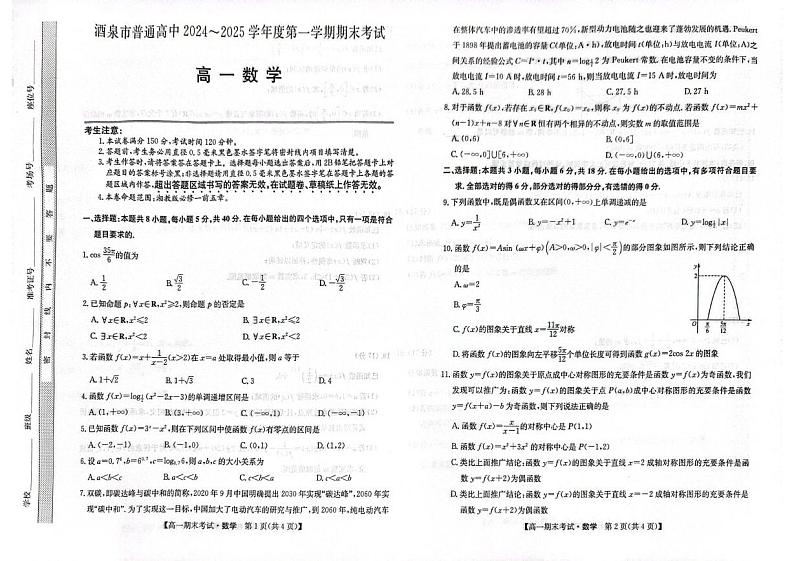 酒泉市普通高中2024～2025学年度第一学期期末考试
高一数学
考生注意：
1.本试卷满分150分,考试时间120分钟。
2.答题前,考生务必用直径0.5毫米黑色墨水签字笔将密封线内项目填写清楚。
3.考生作答时,请将答案答在答题卡上。选择题每小题选出答案后,用2B铅笔把答题卡上对
应题目的答案标号涂黑;非选择题请用直径0.5毫米黑色墨水签字笔在答题卡上各题的答
题区域内作答,超出答题区域书写的答案无效,在试题卷、草稿纸上作答无效。
4.本卷命题范围:湘教版必修一前五章。
一、选择题:本题共8小题,每小题5分,共40分.在每小题给出的四个选项中,只有一项是符合
题目要求的.
1.cos 35π/6 的值为
A. 1/2 B. √3/2 C. -1/2 D. -√3/2
2.已知命题p:∀x∈R,x²≥2,则命题p的否定是
A. ∀x∈R,x²≤2 B. ∃x∈R,x²<2
C. ∃x∈R,x²≤2 D. ∀x∈R,x²<2
3.若函数f(x)=x+1/(x-2)(x>2)在x=a处取得最小值,则a等于
A. 1+√2 B. 1+√3 C. 3 D. 4
4.函数f(x)=log½(x²-2x-3)的单调递增区间是
A. (1,+∞) B. (3,+∞) C. (-∞,1) D. (-∞,-1)
5.已知函数f(x)=3ˣ-x²,则在下列区间中使函数f(x)有零点的区间是
A. (-2,-1) B. (-1,0) C. (0,1) D. (1,2)
6.设a=0.7⁶,b=6⁰·⁷,c=log₀.₇6,则a,b,c的大小关系为
A. a<b<c B. a<c<b C. c<b<a D. c<a<b
7.双碳,即碳达峰与碳中和的简称,2020年9月中国明确提出2030年实现“碳达峰”,2060年实
现“碳中和”.为了实现这一目标,中国加大了电动汽车的研究与推广,到2060年,纯电动汽车
【高一期末考试·数学 第1页(共4页)】
在整体汽车中的渗透率有望超过70%,新型动力电池随之也迎来了蓬勃发展的机遇.Peukert
于1898年提出蓄电池的容量C(单位:A·h),放电时间t(单位:h)与放电电流I(单位:A)之
间关系的经验公式C=Iⁿ·t,其中n=log_{3/2}2为Peukert常数.在电池容量不变的条件下,当
放电电流I=10 A时,放电时间t=56 h,则当放电电流I=15 A时,放电时间为
A. 28.5 h B. 28 h C. 27.5 h D. 27 h
8.对于函数f(x),若存在x₀∈R,f(x₀)=x₀,则称x₀为f(x)的不动点.若函数f(x)=mx²+
(n-1)x+n-8对∀n∈R恒有两个相异的不动点,则实数m的取值范围是
A. (0,6) B. (0,6]
C. (-∞,0]∪[6,+∞) D. (-∞,0)∪(6,+∞)
二、选择题:本题共3小题,每小题6分,共18分.在每小题给出的选项中,有多项符合题目要
求.全部选对的得6分,部分选对的得部分分,有选错的得0分.
9.下列函数中,既是偶函数又在区间(0,+∞)上单调递减的是
A. y=1/x² B. y=-x²+1 C. y=e⁻ˣ D. y=log½|x|
10.函数f(x)=Asin(ωx+φ)(A>0,ω>0,|φ|<π/2)的部分图象如图所示,则下列结论正确
的是
A. ω=2
B. φ=π/3
C. f(x)的图象关于直线x=11π/12对称
D. 将函数f(x)的图象向左平移5π/12个单位长度可得函数g(x)=2cos 2x的图象
y
2
O
π/6
5π/12
x
11.函数y=f(x)的图象关于原点成中心对称图形的充要条件是函数y=f(x)为奇函数,我们
发现可以推广为:函数y=f(x)的图象关于点P(a,b)成中心对称图形的充要条件是函数
y=f(x+a)-b为奇函数,则下列说法正确的是
A. 函数f(x)=x/(x-1)的对称中心是P(1,1)
B. 函数f(x)=x³+3x²的对称中心是P(-1,2)
C. 类比上面推广结论:函数y=f(x)的图象关于直线x=2成轴对称图形的充要条件是函
数y=f(x+2)为偶函数
D. 类比上面推广结论:函数y=f(x)的图象关于直线x=-2成轴对称图形的充要条件是
函数y=f(x+2)为偶函数
【高一期末考试·数学 第2页(共4页)】
学校
班级
姓名
准考证号
考场号
座位号
密封线内不要答题